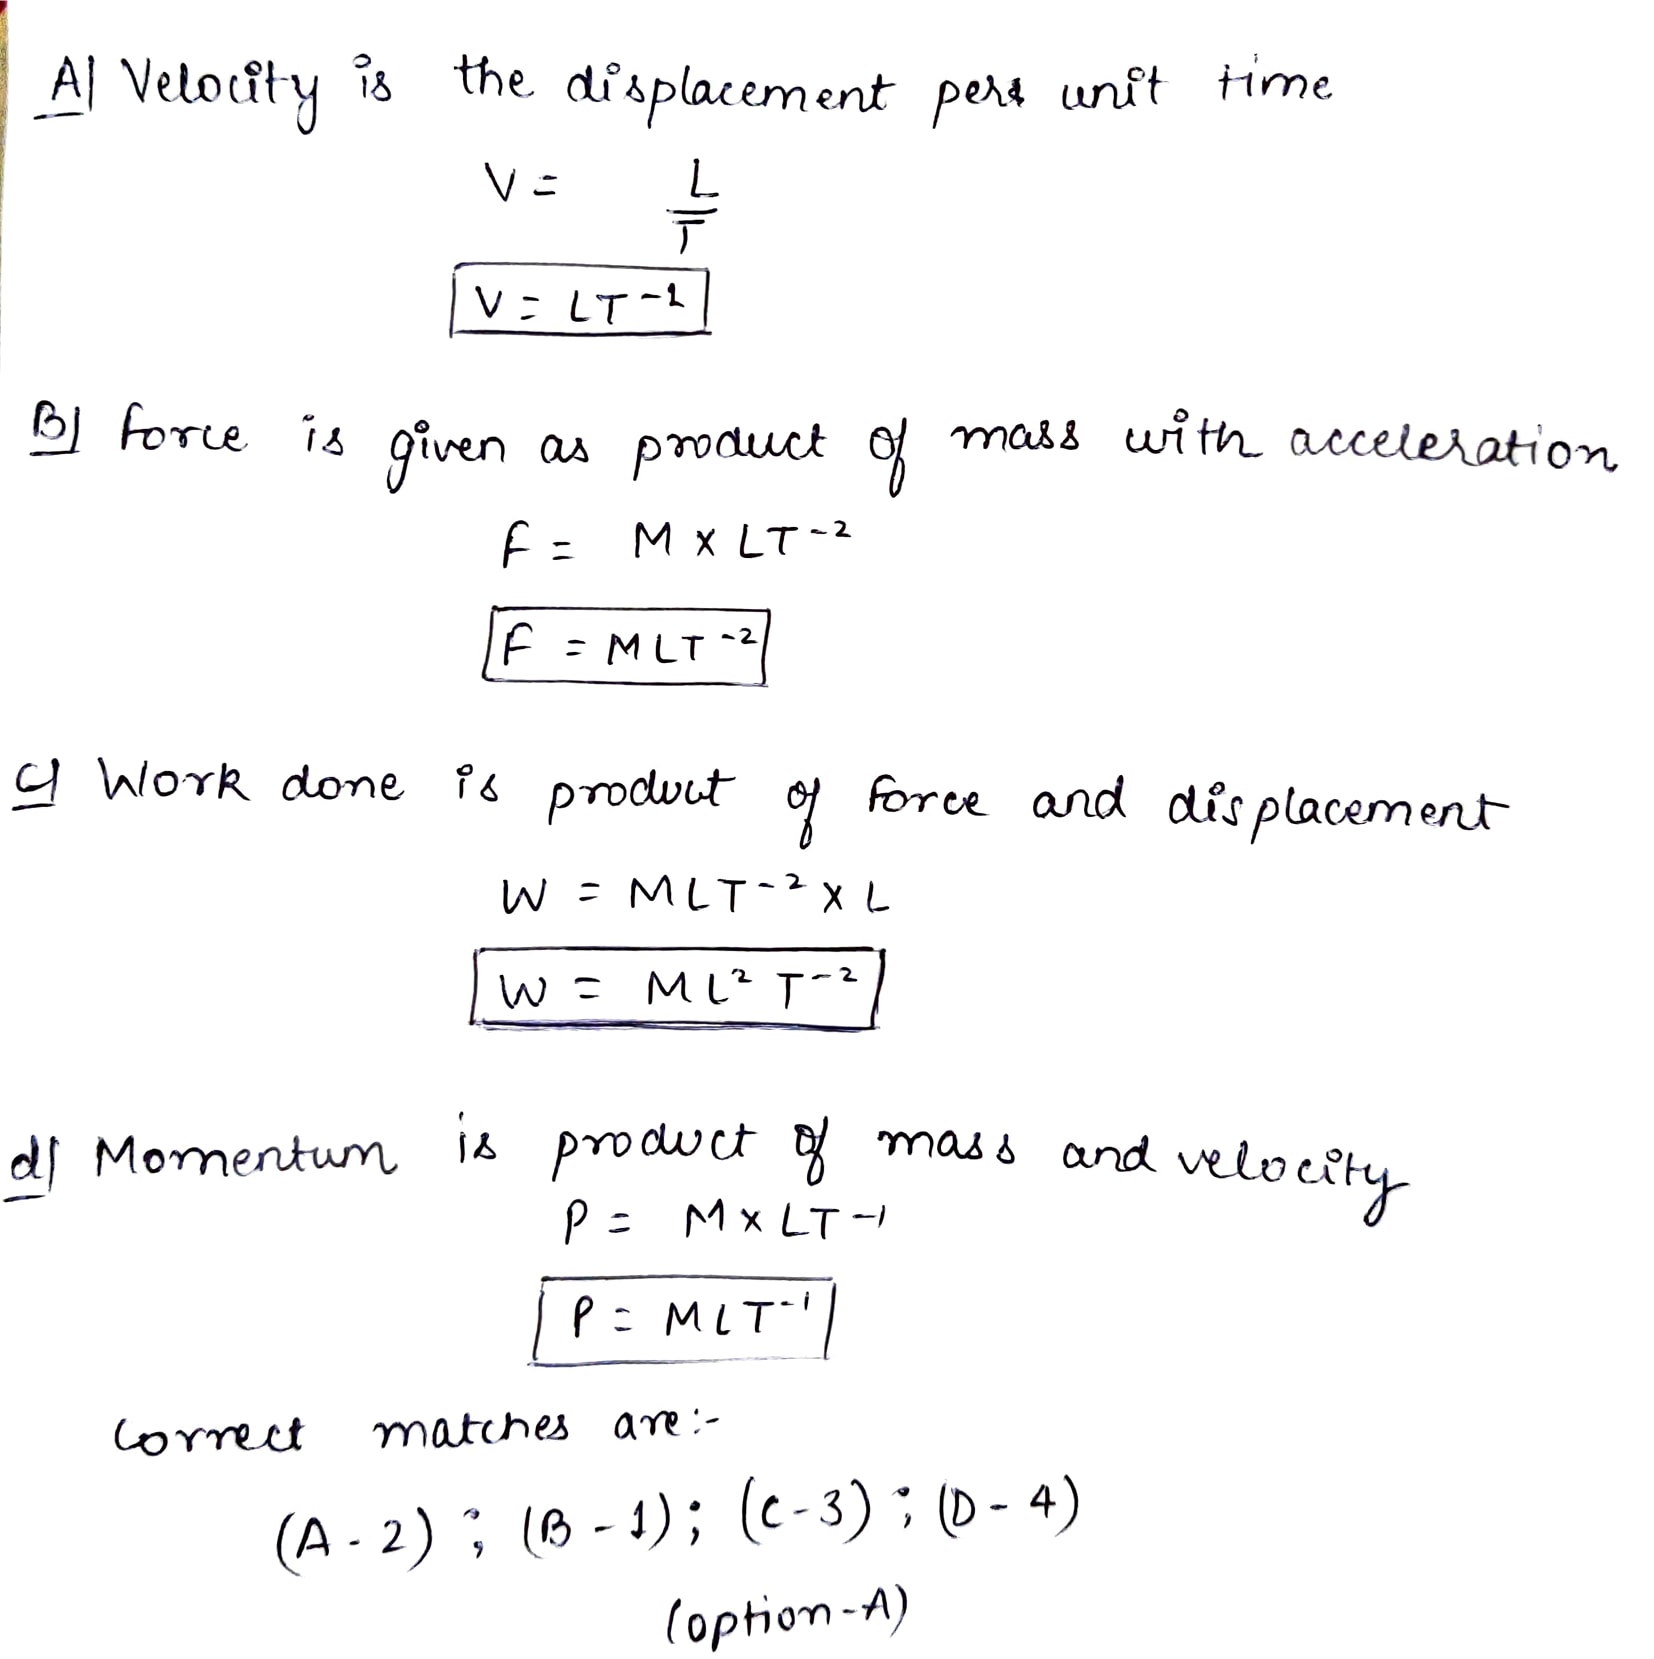 A) Velocity is the displacement per unit time
V = L/T
V = LT-1
B) force is given as product of mass with acceleration
F = M x LT-2
F = MLT-2
c) Work done is product of force and displacement
W = MLT-2 x L
W = ML2 T-2
d) Momentum is product of mass and velocity
P = M x LT-1
P = MLT-1
Correct matches are:-
(A-2) ; (B-1) ; (C-3) ; (D-4)
(option-A)